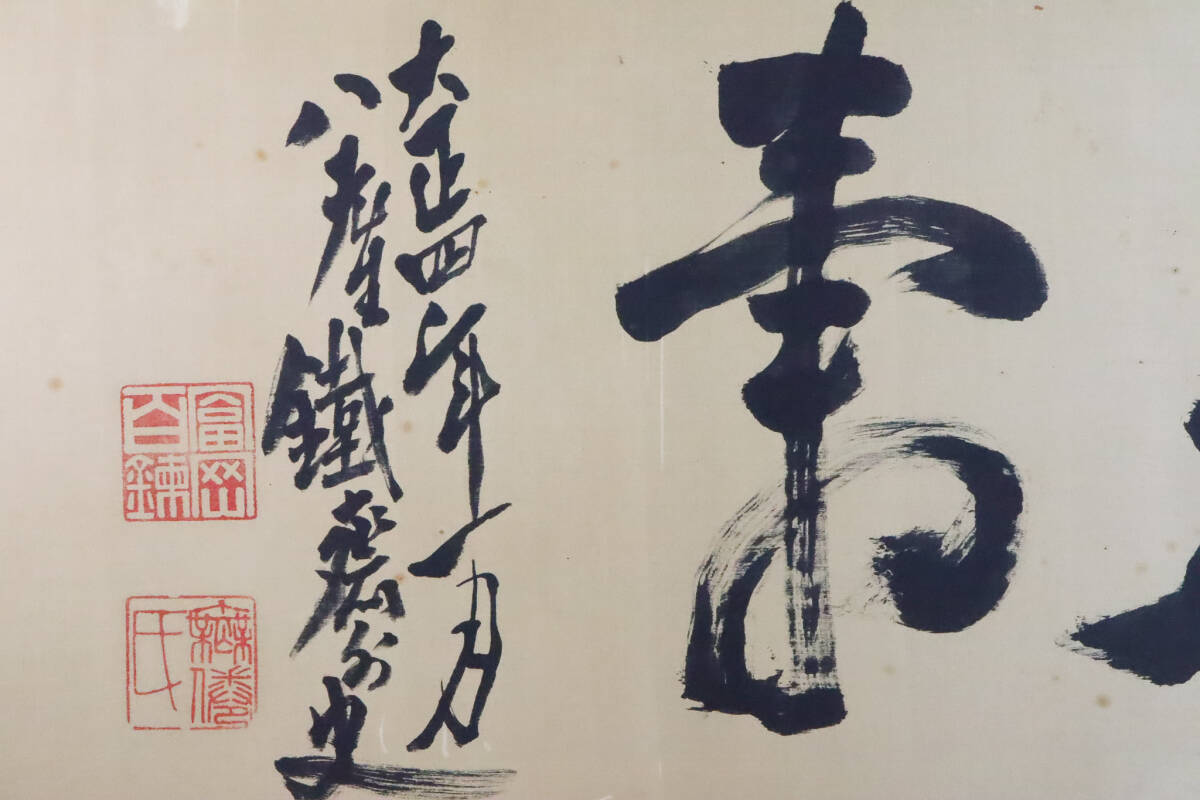 壽
大正四年一月
八耋鐵齋外史
富岡百錬
無倦氏